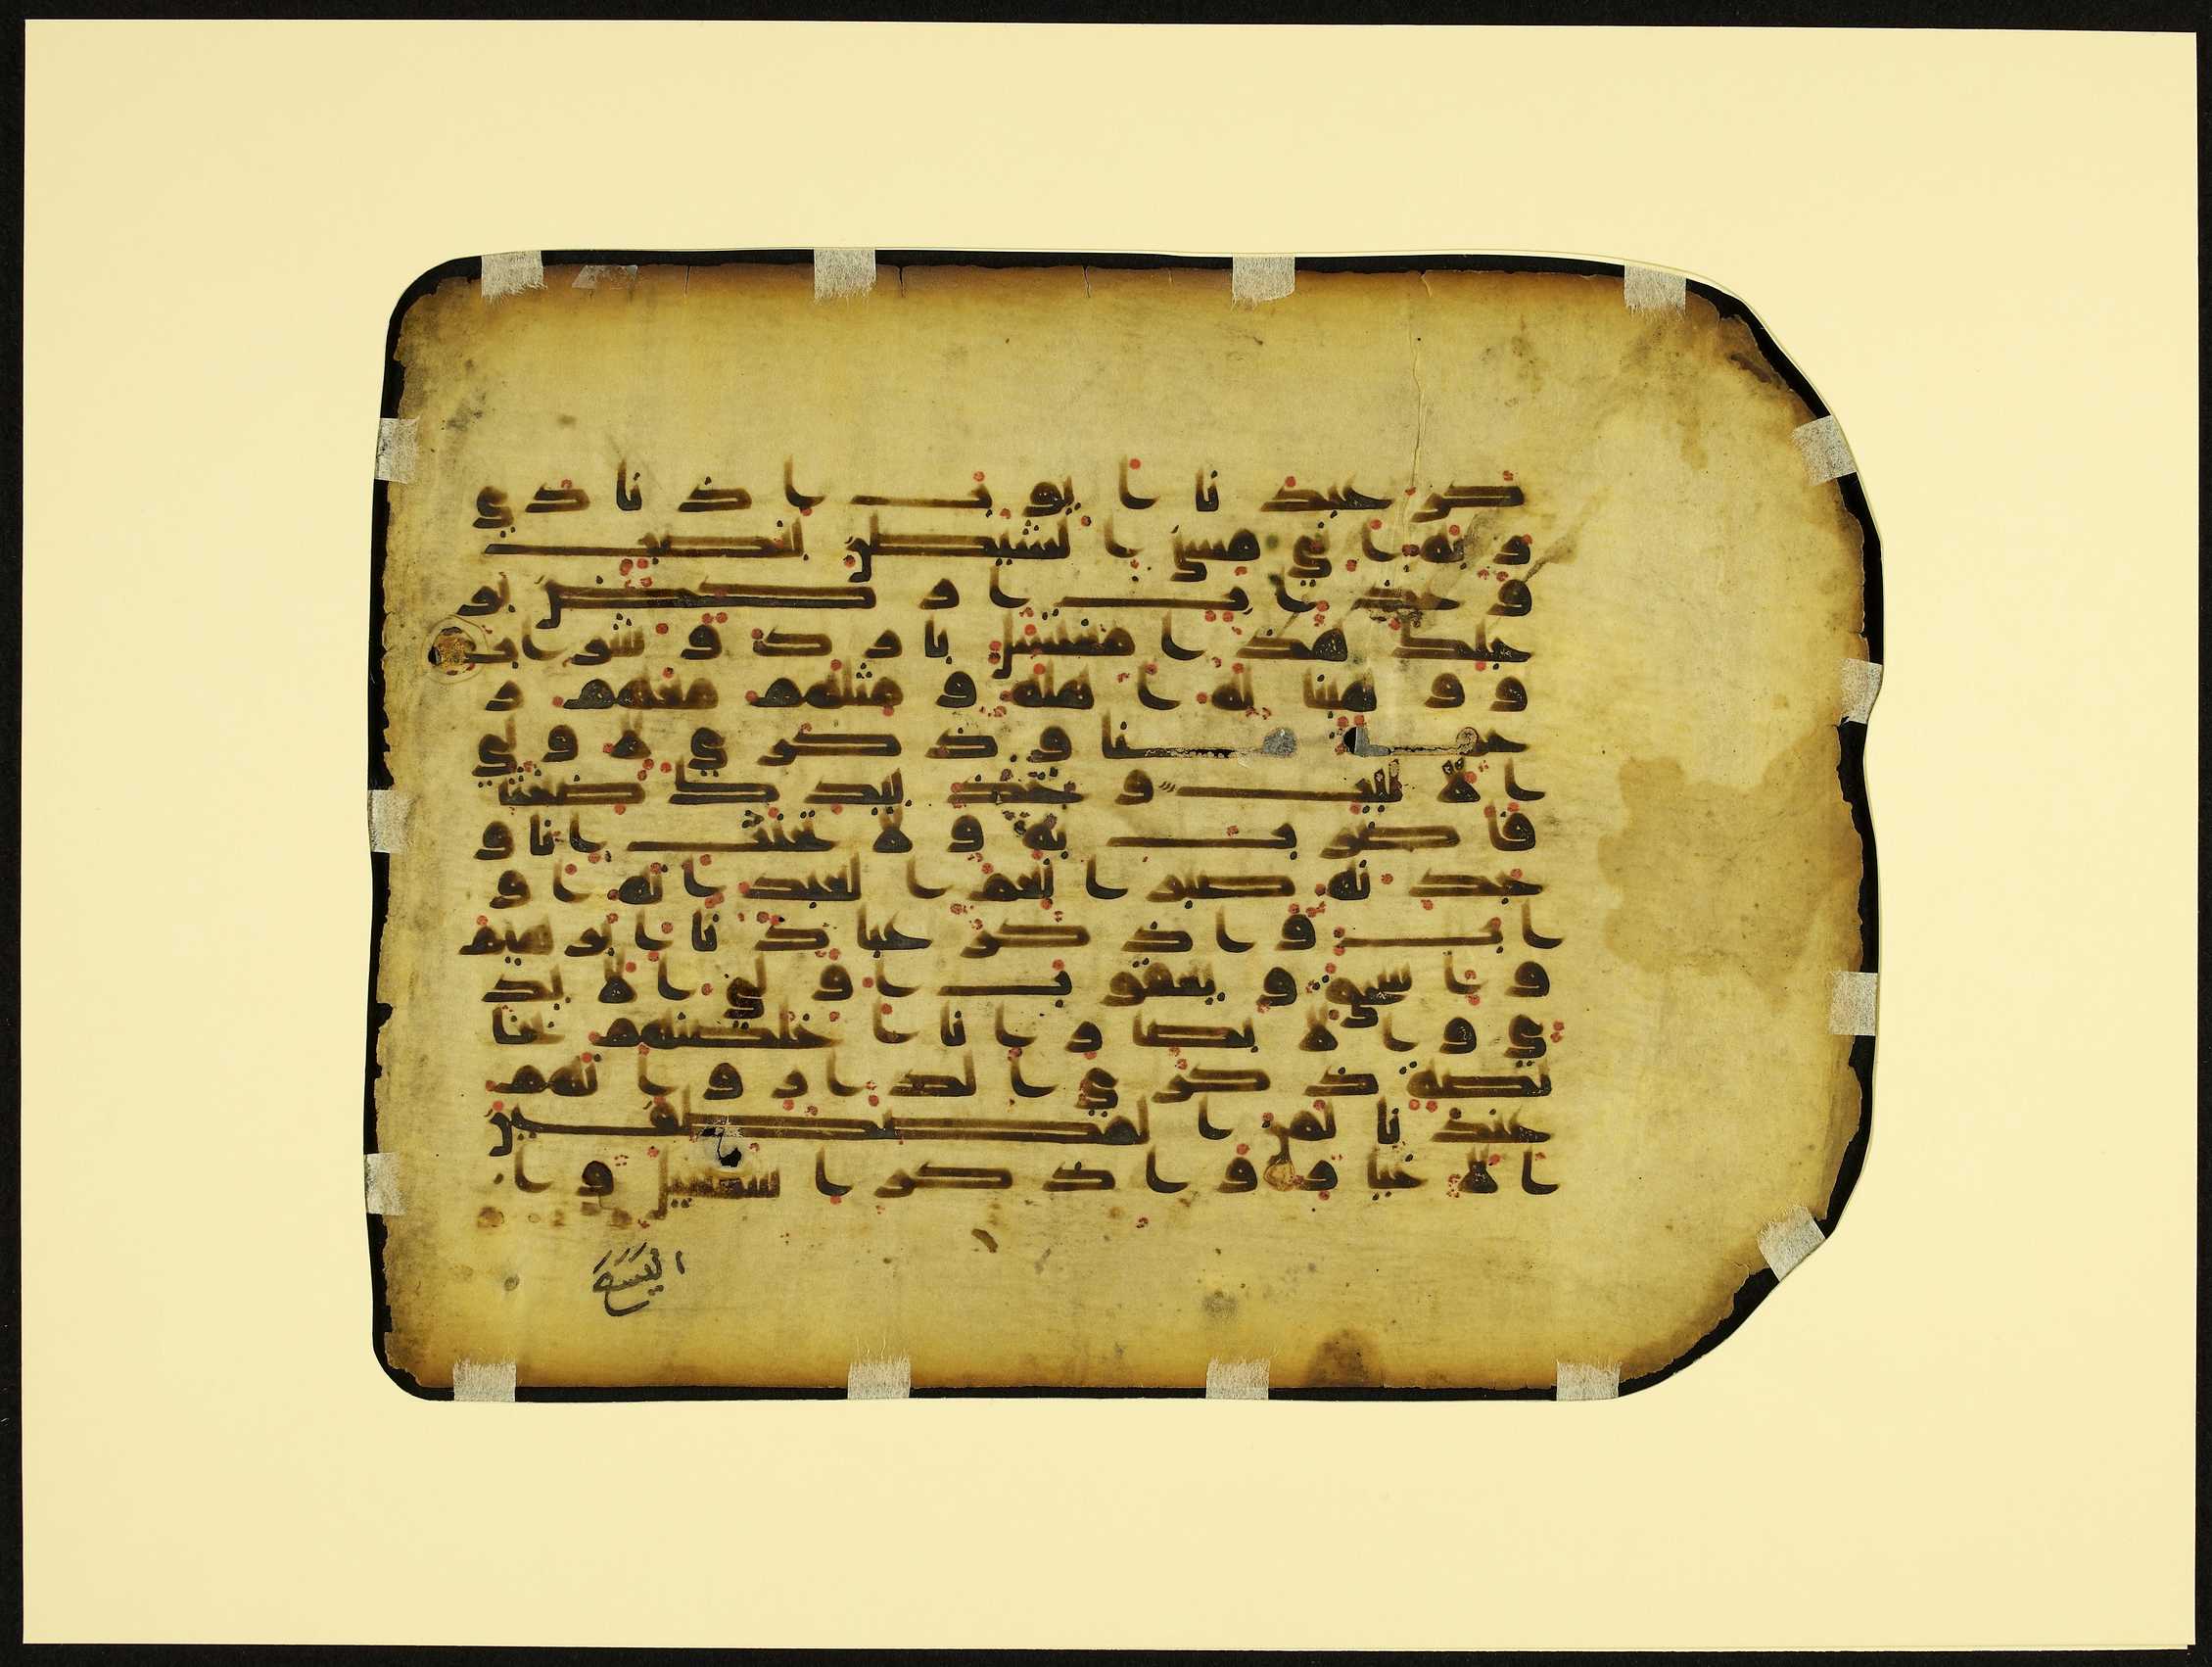 كر عبدنا ايوب اذ نادي
ربه اني مسني الشيطن بنصب
و عذاب اركض بر
جلك هذا مغتسل بارد و شراب
و وهبنا له اهله و مثلهم معهم ر
حمة منا و ذكري لاولي
الالبب و خذ بيدك ضغثا
فاضرب به و لا تحنث انا و
جدنه صبرا نعم العبد انه او
اب و اذكر عبادنا ابرهيم
و اسحق و يعقوب اولي الايد
ي و الابصار انا اخلصنهم بخا
لصة ذكري الدار و انهم
عندنا لمن المصطفين
الاخيار و اذكر اسمعيل و ا
اليسع